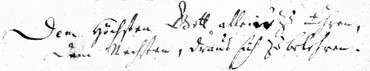 Dem Höchsten Gott allein zu Ehren,
Dem Nechsten, draus sich zu belehren.